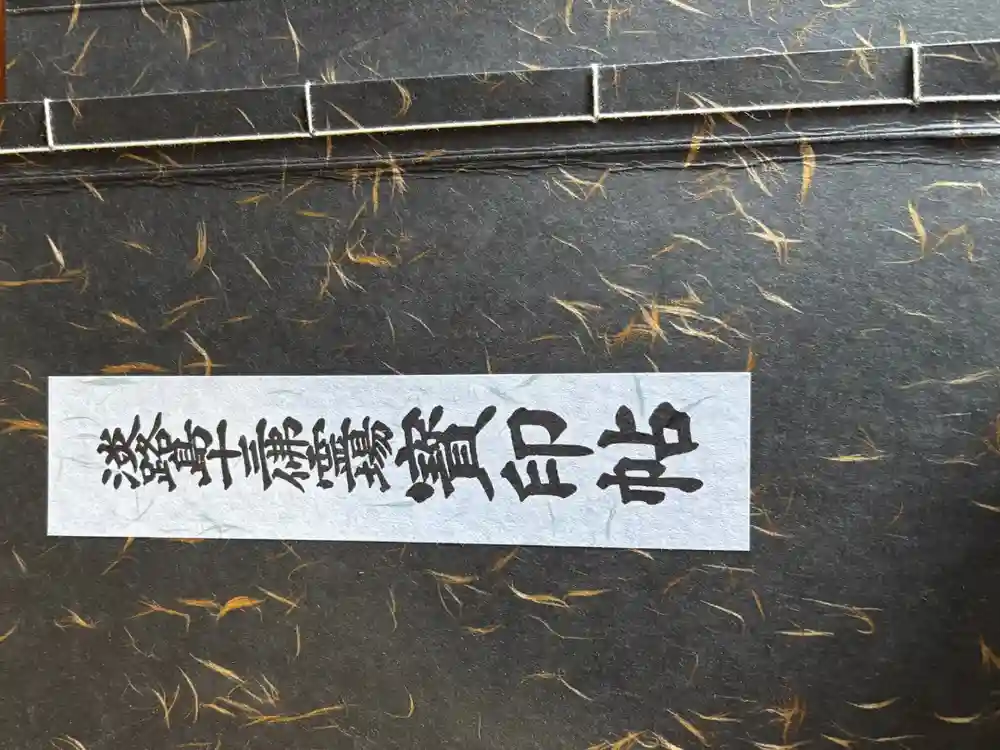 淡路島十三佛霊場寳印帖